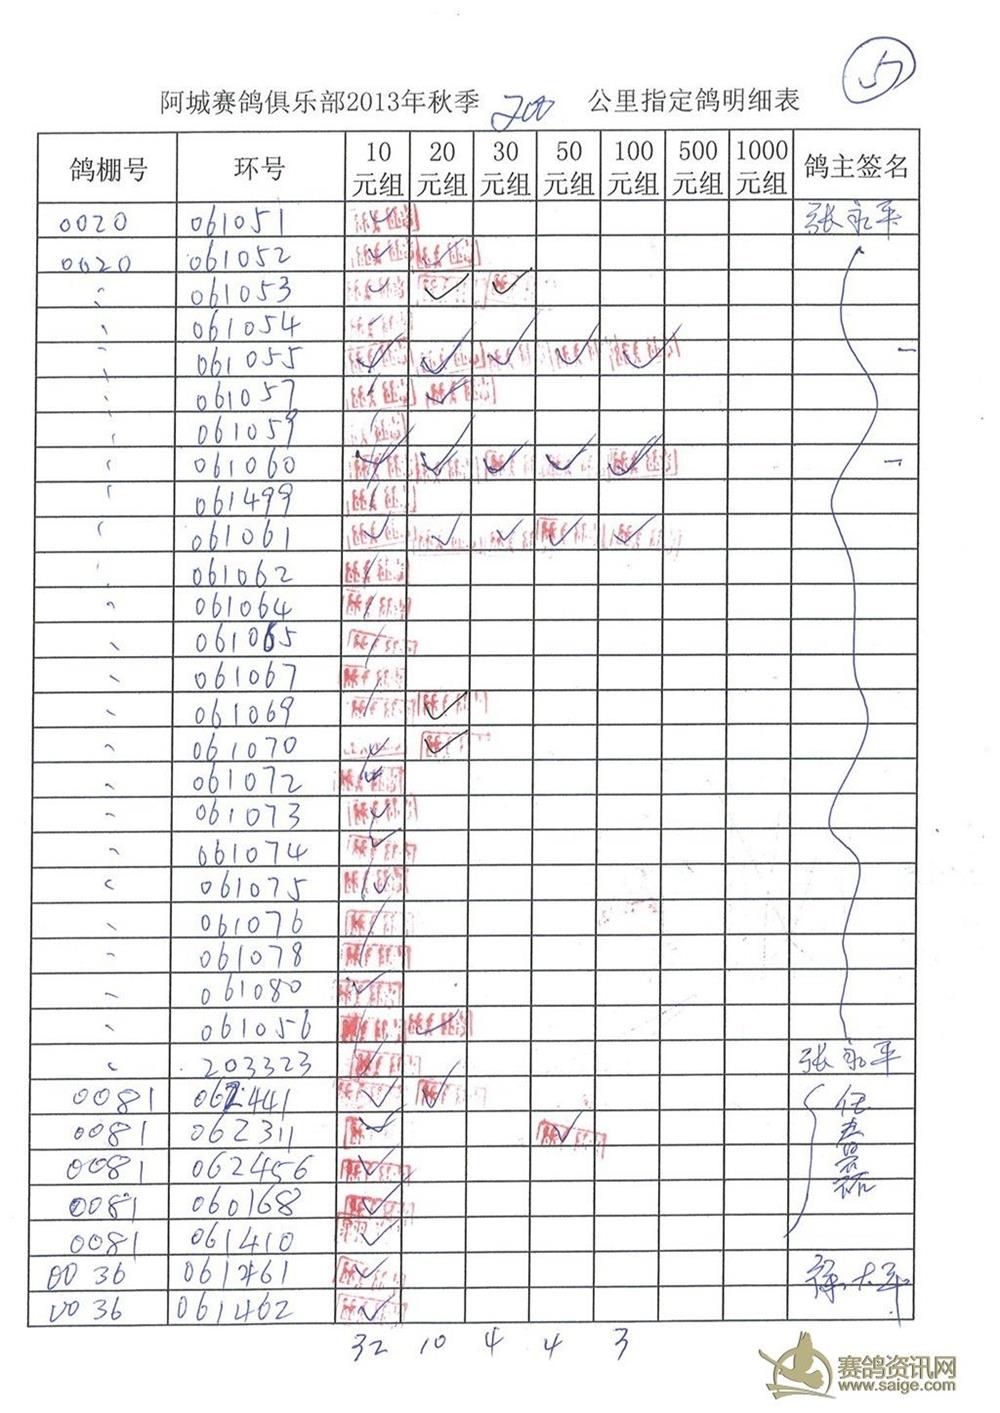 5
阿城赛鸽俱乐部2013年秋季 200 公里指定鸽明细表
鸽棚号 环号 10元组 20元组 30元组 50元组 100元组 500元组 1000元组 鸽主签名
0020 061051 ✓ 张永平
0020 061052 ✓ ✓
〃 061053 ✓ ✓ ✓
〃 061054 ✓
〃 061055 ✓ ✓ ✓ ✓ ✓ –
〃 061057 ✓ ✓
〃 061059 ✓
〃 061060 ✓ ✓ ✓ ✓ ✓ –
〃 061499 ✓
〃 061061 ✓ ✓ ✓ ✓ ✓
〃 061062 ✓
〃 061064 ✓
〃 061065 ✓
〃 061067 ✓
〃 061069 ✓ ✓
〃 061070 ✓ ✓
〃 061072 ✓
〃 061073 ✓
〃 061074 ✓
〃 061075 ✓
〃 061076 ✓
〃 061078 ✓
〃 061080 ✓
〃 061056 ✓ ✓
〃 203323 ✓ 张永平
0081 062441 ✓ ✓
0081 062311 ✓ ✓
0081 062456 ✓
0081 060168 ✓
0081 061410 ✓
0036 061461 ✓
0036 061462 ✓
32 10 4 4 3
赛鸽资讯网
www.saige.com